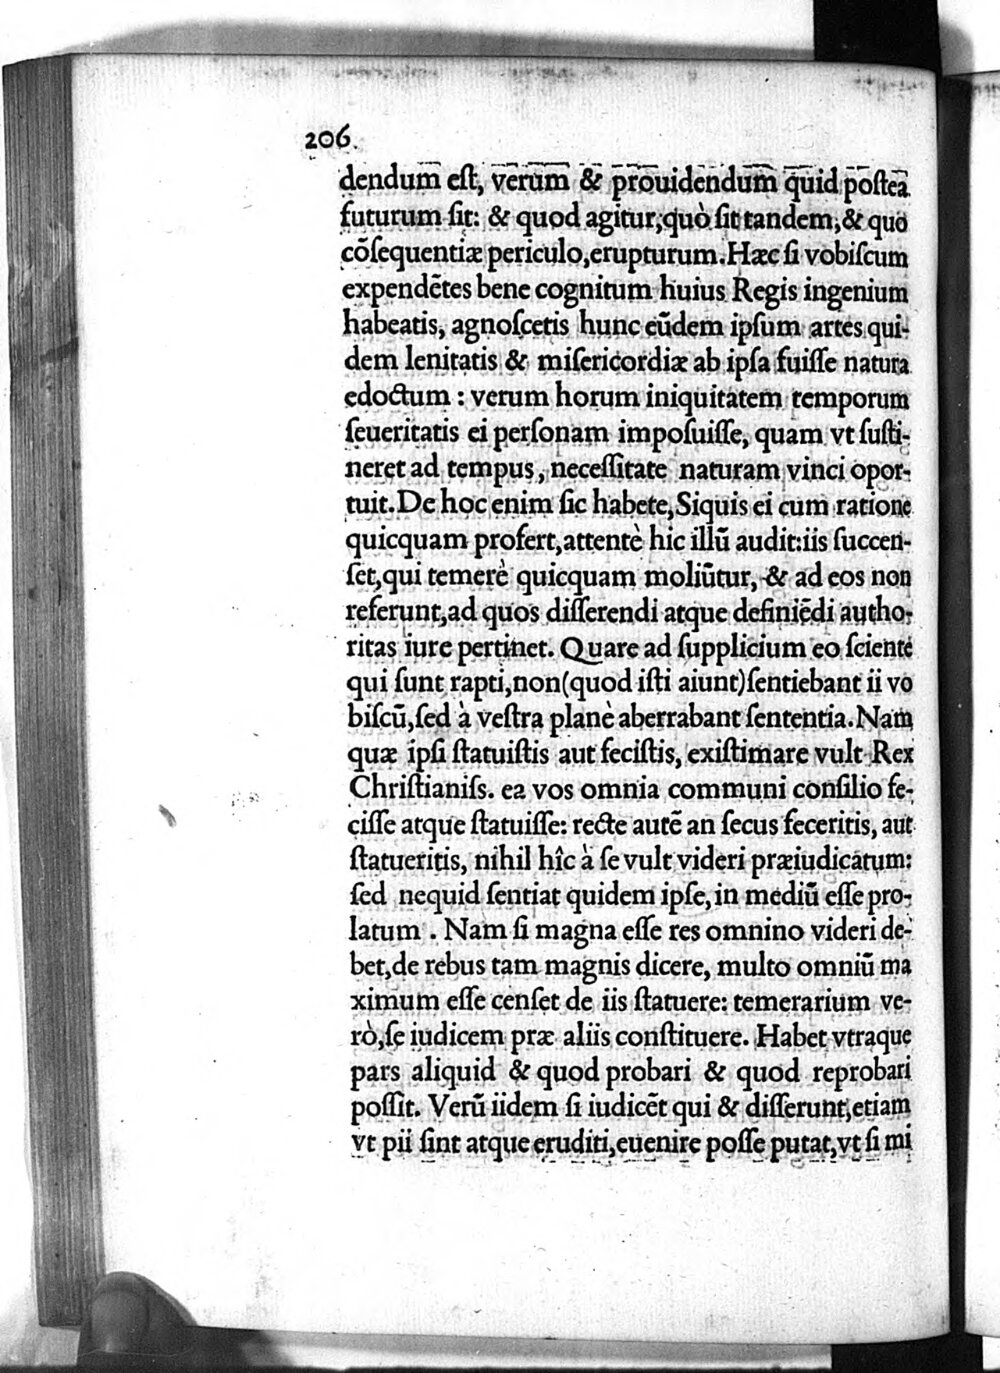 206.
dendum est, verum & prouidendum quid postea
futurum sit: & quod agitur, quò sit tandem, & quo
cōsequentiæ periculo, erupturum. Hæc si vobiscum
expendētes bene cognitum huius Regis ingenium
habeatis, agnoscetis hunc eūdem ipsum artes qui-
dem lenitatis & misericordiæ ab ipsa fuisse natura
edoctum : verum horum iniquitatem temporum
seueritatis ei personam imposuisse, quam vt susti-
neret ad tempus, necessitate naturam vinci opor-
tuit. De hoc enim sic habete, Siquis ei cum ratione
quicquam profert, attentè hic illū audit: iis succen-
set, qui temerè quicquam moliūtur, & ad eos non
referunt, ad quos disserendi atque definiēdi autho-
ritas iure pertinet. Quare ad supplicium eo sciente
qui sunt rapti, non (quod isti aiunt) sentiebant ii vo
biscū, sed à vestra planè aberrabant sententia. Nam
quæ ipsi statuistis aut fecistis, existimare vult Rex
Christianiss. ea vos omnia communi consilio fe-
cisse atque statuisse: recte autē an secus feceritis, aut
statueritis, nihil hîc à se vult videri præiudicatum:
sed nequid sentiat quidem ipse, in mediū esse pro-
latum . Nam si magna esse res omnino videri de-
bet, de rebus tam magnis dicere, multo omniū ma
ximum esse censet de iis statuere: temerarium ve-
rò, se iudicem præ aliis constituere. Habet vtraque
pars aliquid & quod probari & quod reprobari
possit. Verū iidem si iudicēt qui & disserunt, etiam
vt pii sint atque eruditi, euenire posse putat, vt si mi